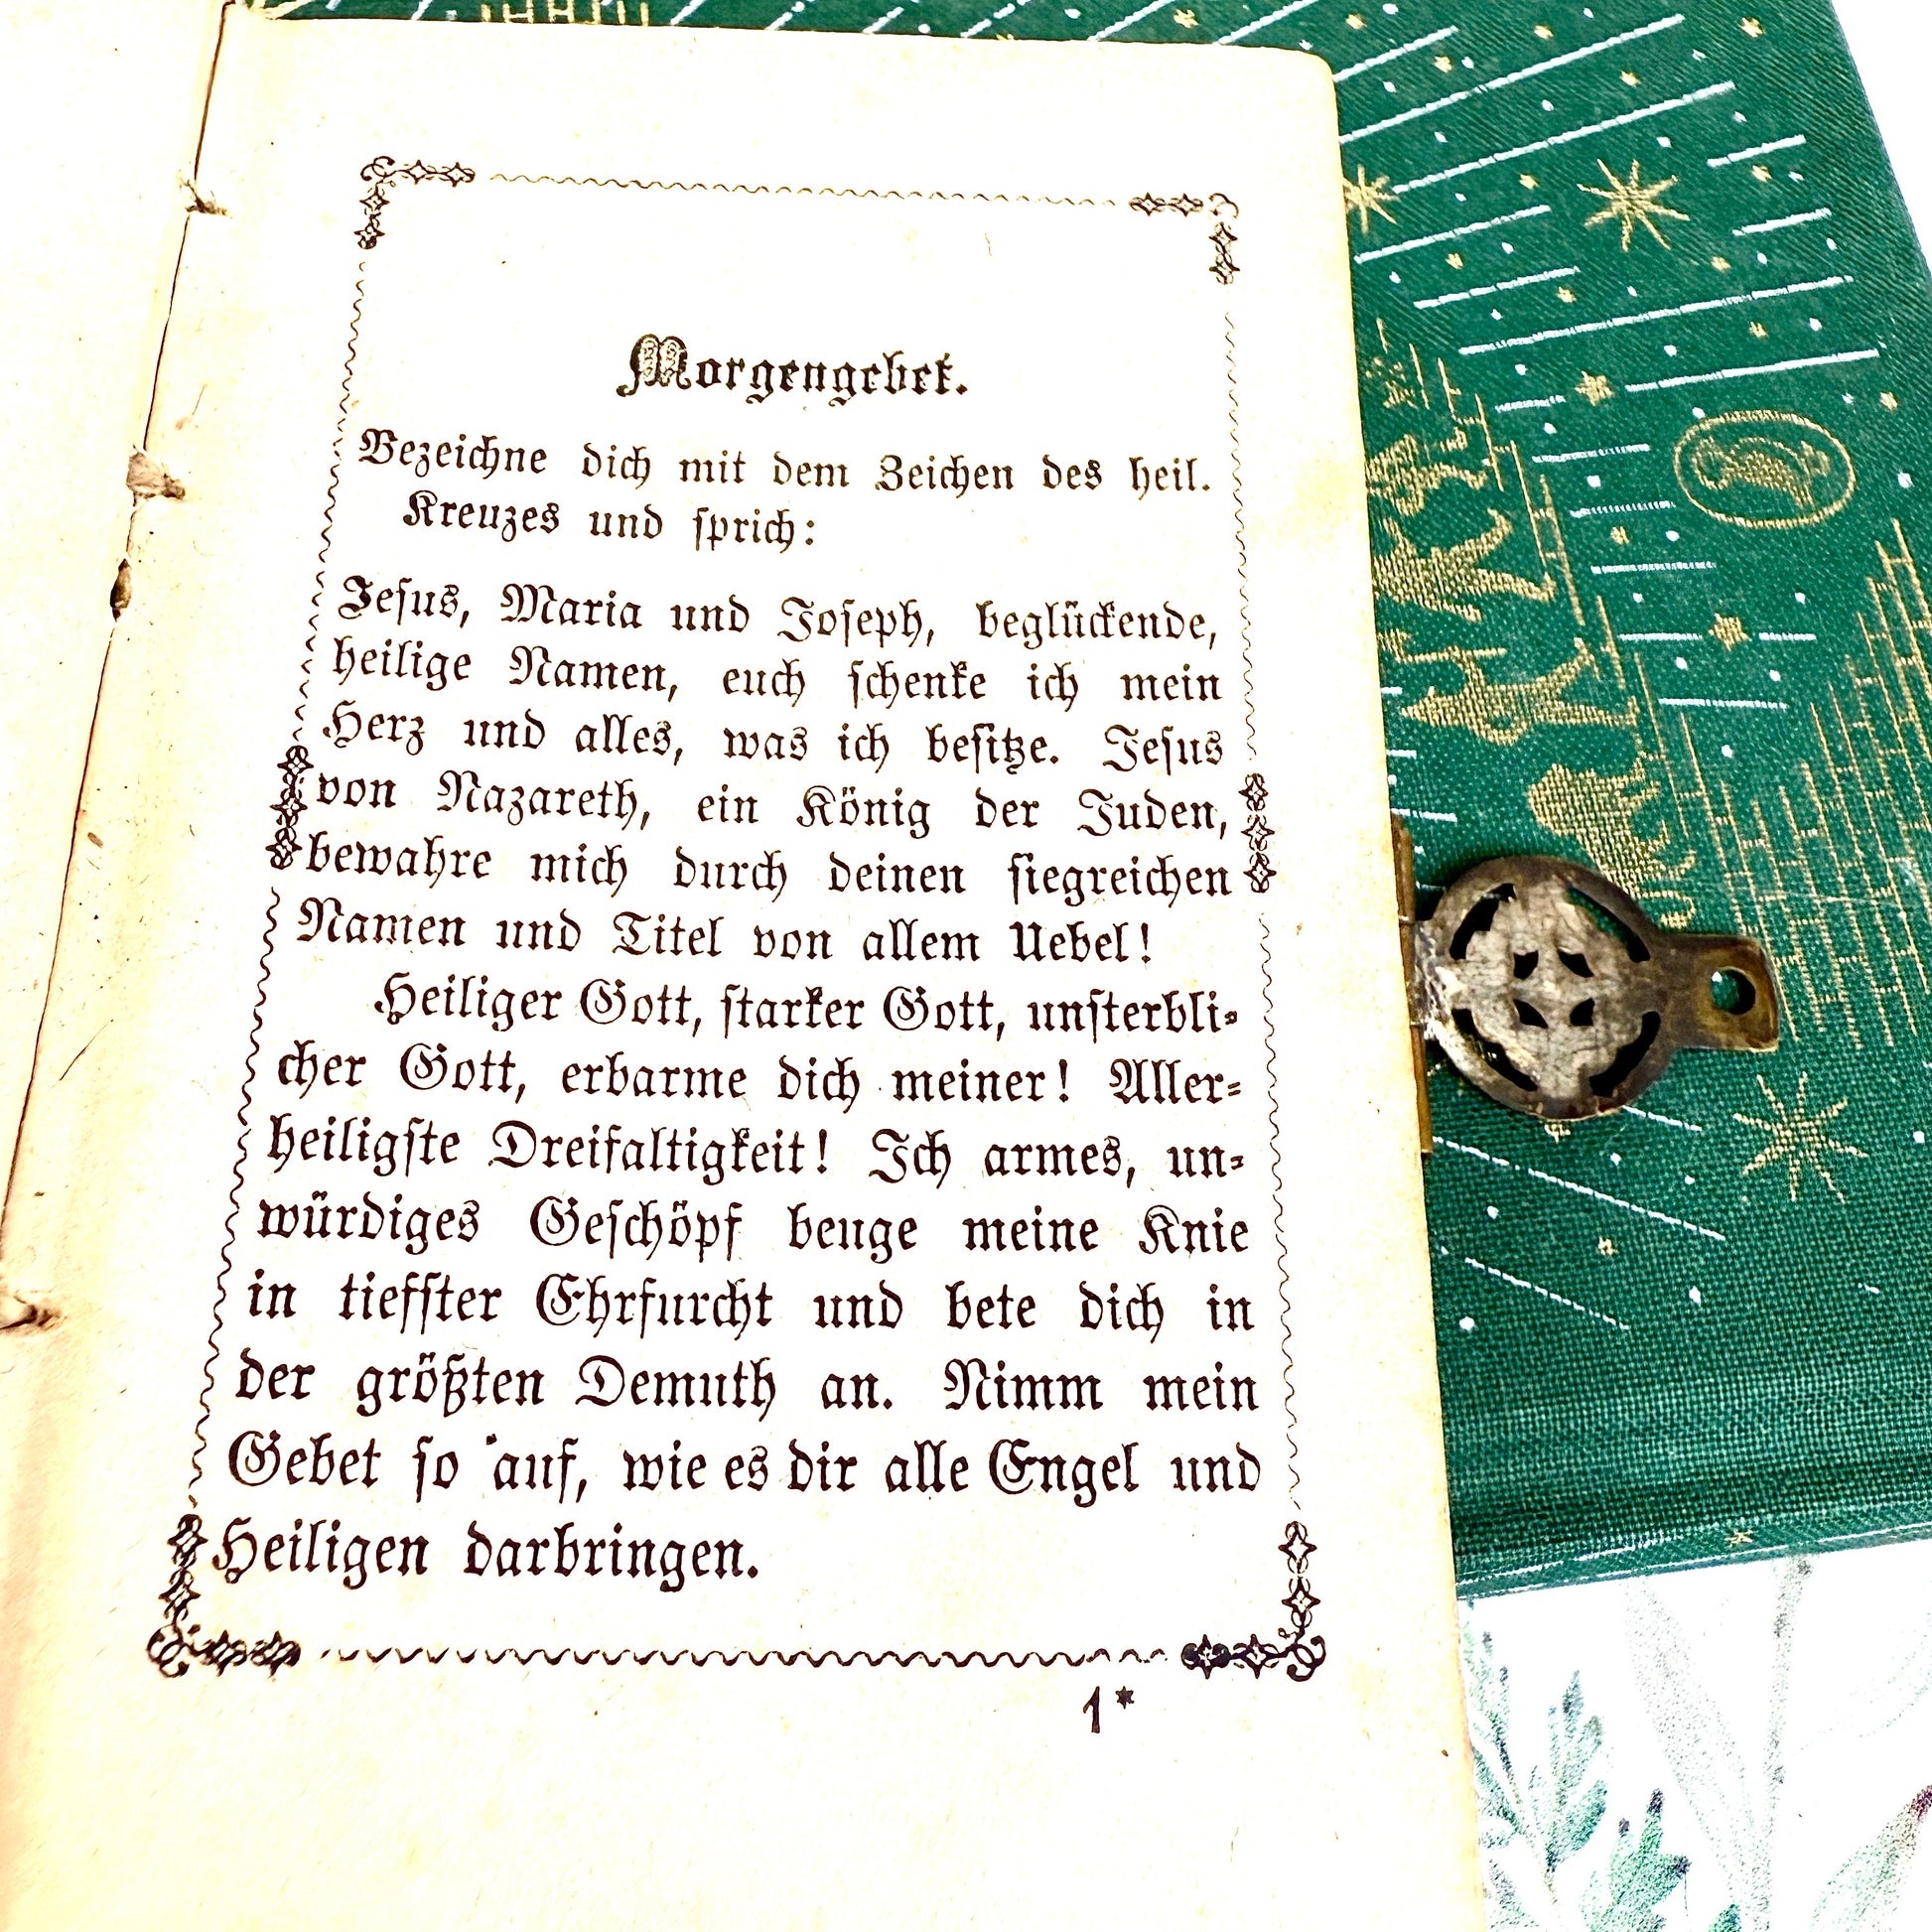 Morgengebet.
Bezeichne dich mit dem Zeichen des heil.
Kreuzes und sprich:
Jesus, Maria und Joseph, beglückende,
heilige Namen, euch schenke ich mein
Herz und alles, was ich besitze. Jesus
von Nazareth, ein König der Juden,
bewahre mich durch deinen siegreichen
Namen und Titel von allem Uebel!
Heiliger Gott, starker Gott, unsterbli-
cher Gott, erbarme dich meiner! Aller-
heiligste Dreifaltigkeit! Ich armes, un-
würdiges Geschöpf beuge meine Knie
in tiefster Ehrfurcht und bete dich in
der größten Demuth an. Nimm mein
Gebet so auf, wie es dir alle Engel und
Heiligen darbringen.
1*